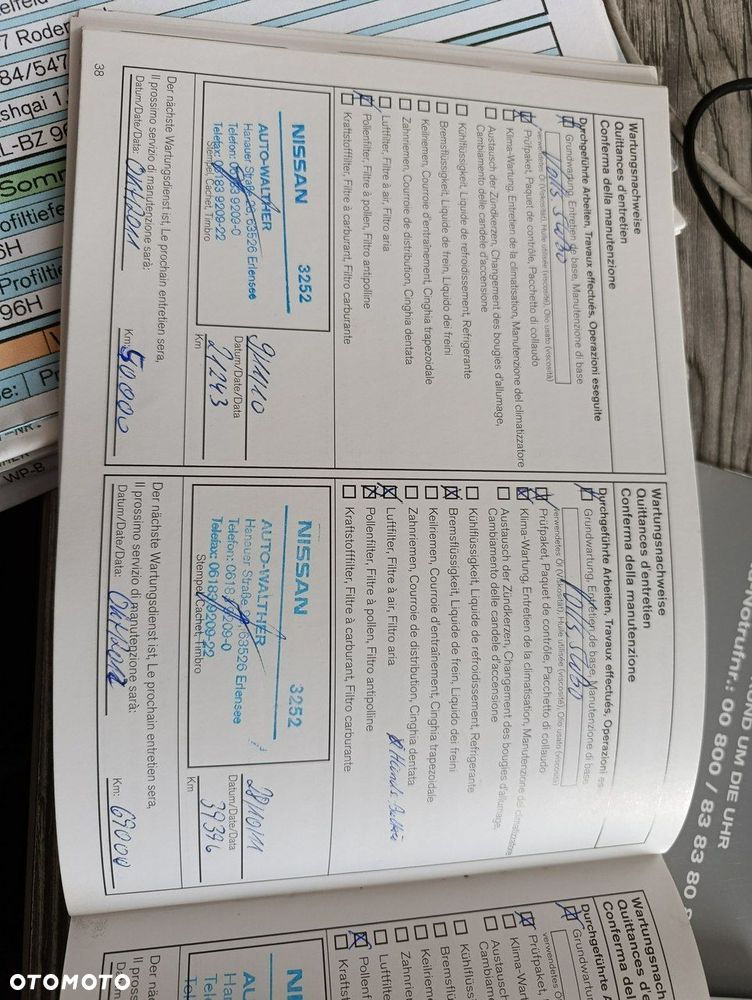 Wartungsnachweise
Quittances d'entretien
Conferma della manutenzione
Durchgeführte Arbeiten, Travaux effectués, Operazioni eseguite
Grundwartung, Entretien de base, Manutenzione di base
verwendetes Öl (Viskosität), Huile utilisée (viscosité), Olio usato (viscosità)
Prüfpaket, Paquet de contrôle, Pacchetto di collaudo
Klima-Wartung, Entretien de la climatisation, Manutenzione del climatizzatore
Austausch der Zündkerzen, Changement des bougies d'allumage,
Cambiamento delle candele d'accensione
Kühlflüssigkeit, Liquide de refroidissement, Refrigerante
Bremsflüssigkeit, Liquide de frein, Liquido dei freini
Keilriemen, Courroie d'entraînement, Cinghia trapezoidale
Zahnriemen, Courroie de distribution, Cinghia dentata
Luftfilter, Filtre à air, Filtro aria
Pollenfilter, Filtre à pollen, Filtro antipolline
Kraftstofffilter, Filtre à carburant, Filtro carburante
NISSAN 3252
AUTO-WALTHER
Hanauer Straße 26, 63526 Erlensee
Telefon: 06183 9209-0
Telefax: 06183 9209-22
Stempel, Cachet, Timbro
9/11/10
Datum/Date/Data
21243
Km
Der nächste Wartungsdienst ist, Le prochain entretien sera,
Il prossimo servizio di manutenzione sarà:
Datum/Date/Data: Okt/2011
Km: 50000
38
Wartungsnachweise
Quittances d'entretien
Conferma della manutenzione
Durchgeführte Arbeiten, Travaux effectués, Operazioni es
Grundwartung, Entretien de base, Manutenzione di base
verwendetes Öl (Viskosität), Huile utilisée (viscosité), Olio usato (viscosità)
Prüfpaket, Paquet de contrôle, Pacchetto di collaudo
Klima-Wartung, Entretien de la climatisation, Manutenzione del climatizzatore
Austausch der Zündkerzen, Changement des bougies d'allumage,
Cambiamento delle candele d'accensione
Kühlflüssigkeit, Liquide de refroidissement, Refrigerante
Bremsflüssigkeit, Liquide de frein, Liquido dei freini
Keilriemen, Courroie d'entraînement, Cinghia trapezoidale
Zahnriemen, Courroie de distribution, Cinghia dentata
Luftfilter, Filtre à air, Filtro aria
Pollenfilter, Filtre à pollen, Filtro antipolline
Kraftstofffilter, Filtre à carburant, Filtro carburante
NISSAN 3252
AUTO-WALTHER
Hanauer Straße 63526 Erlensee
Telefon: 0618 9209-0
Telefax: 06183/9209-22
Stempel, Cachet, Timbro
28/10/11
Datum/Date/Data
39396
Km
Der nächste Wartungsdienst ist, Le prochain entretien sera,
Il prossimo servizio di manutenzione sarà:
Datum/Date/Data: Okt/2012
Km: 69000
Wartungsnach
Quittances d'
Conferma de
Durchgeführte A
Grundwartung,
verwendetes Ö
Prüfpaket,
Klima-War
Austausch
Cambiam
Kühlflüssi
Bremsflü
Keilrieme
Zahnrie
Luftfilte
Pollenf
Kraftst
NI
AU
Ha
Tel
Der nä
Il pross
Datum/D
7 Roder
84/547
shqai 1.
L-BZ 96
Somm
ofiltiefe
6H
Profiltie
96H
WP-B
ND UM DIE UHR
otrufnr.: 00 800 / 83 83 80
OTOMOTO